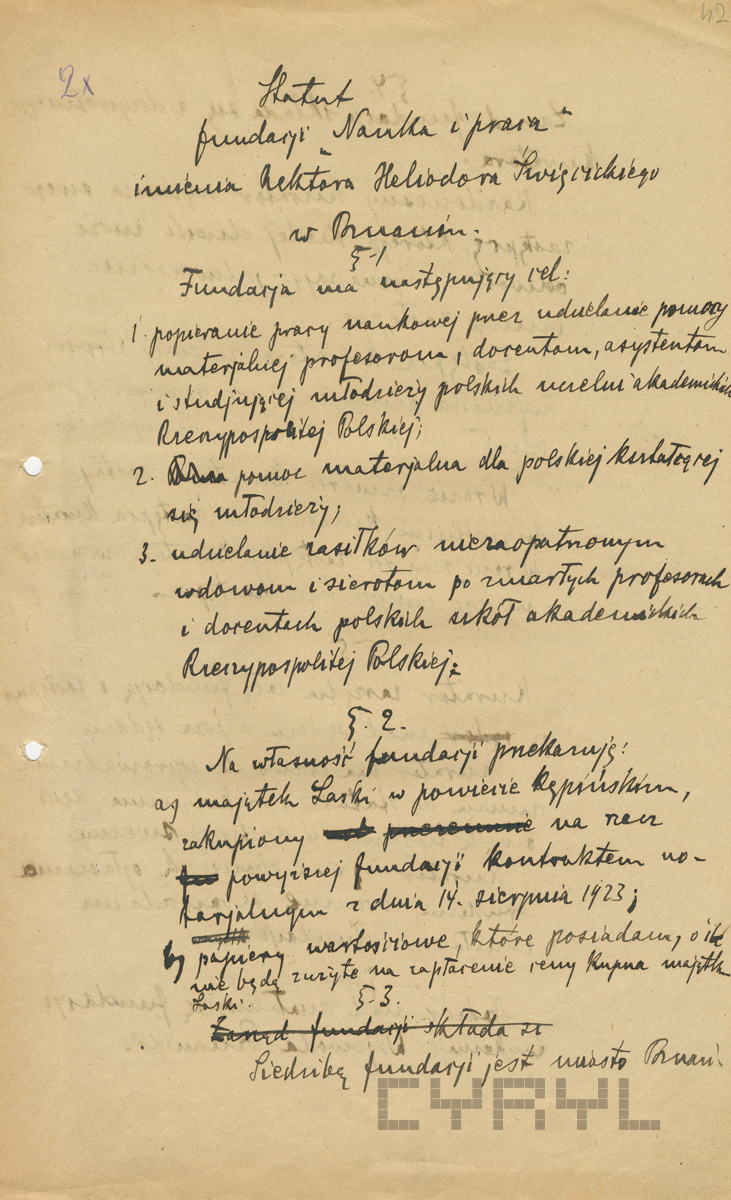 42
2x
Statut
fundacji "Nauka i praca"
imienia Rektora Heliodora Święcickiego
w Poznaniu.
§-1
Fundacja ma następujący cel:
1. popieranie pracy naukowej przez udzielanie pomocy
materjalnej profesorom, docentom, asystentom
i studjującej młodzieży polskich uczelni akademickich
Rzeczypospolitej Polskiej;
2. pomoc materjalna dla polskiej kształcącej
się młodzieży;
3. udzielanie zasiłków niezaopatrzonym
wdowom i sierotom po zmarłych profesorach
i docentach polskich szkół akademickich
Rzeczypospolitej Polskiej.
§. 2.
Na własność fundacji przekazuję:
a) majątek Laski w powiecie Kępińskim,
zakupiony przezemnie na rzecz
powyższej fundacji kontraktem no-
tarjalnym z dnia 14. sierpnia 1923;
b) papiery wartościowe, które posiadam, o ile
nie będą zużyte na zapłacenie ceny kupna majątku
Laski.
§-3.
Zarząd fundacji składa się
Siedzibą fundacji jest miasto Poznań.
CYRYL